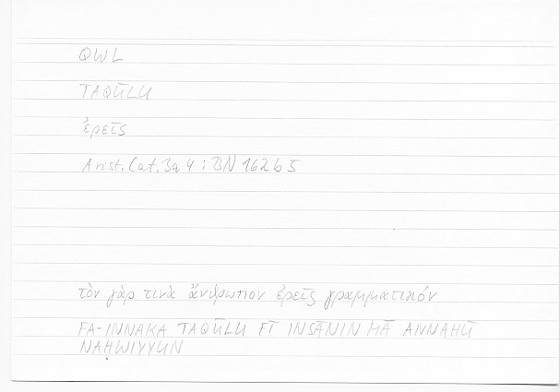 QWL
TAQŪLU
ἐρεῖς
Arist. Cat. 3a4 : BN 162b5
τὸν γάρ τινὰ ἄνθρωπον ἐρεῖς γραμματικόν
FA-INNAKA TAQŪLU FĪ INSĀNIN MĀ ANNAHŪ
NAḤWIYYUN